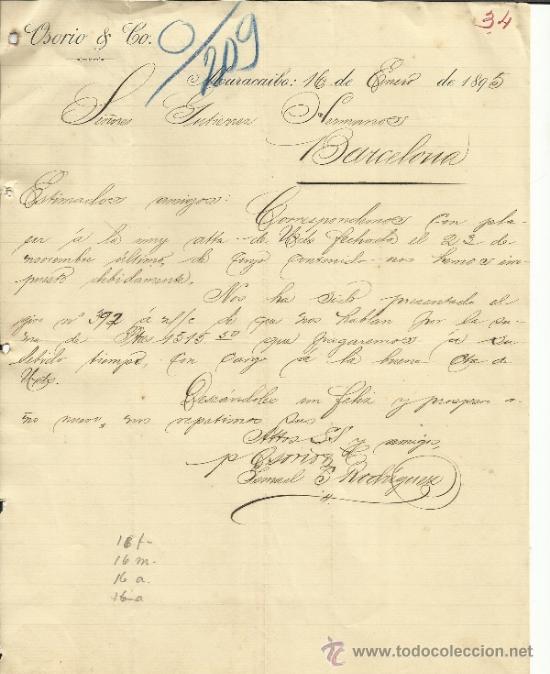 Osorio & Co.
0/209
34
Maracaibo: 16 de Enero de 1895
Señores Gutierrez Hermanos
Barcelona
Estimados amigos:
Correspondemos con pla-
cer á la muy atta. de Uds fechada el 22 de
noviembre último, de cuyo contenido nos hemos im-
puesto debidamente.
Nos ha sido presentado el
giro nº 397 á n/c de que nos hablan por la su-
ma de Ptas 1515.50 que pagaremos á su
debido tiempo, con cargo á la buena cta de
Uds.
Deseándoles un feliz y prospero a-
ño nuevo, nos repetimos sus
Attos SS y amigos
p Osorio & C
Ismael S Rodríguez
16 f-
16 m.
16 a.
16 a
todocoleccion.net